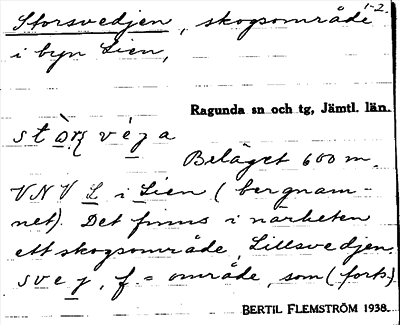 Storsvedjen, skogsområde 1-2.
i byn Lien,
Ragunda sn och tg, Jämtl. län.
Beläget 600 m.
VNV L i Lien (bergnam-
net). Det finns i närheten
ett skogsområde, Lillsvedjen.
svej, f. = område, som (forts.)
BERTIL FLEMSTRÖM 1938.